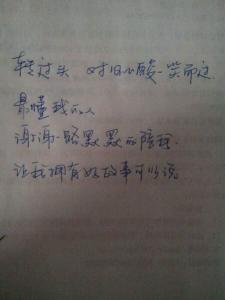 转过头 对旧心酸一笑而过
最懂我的人
谢谢一路默默的陪我
让我拥有好故事可以说